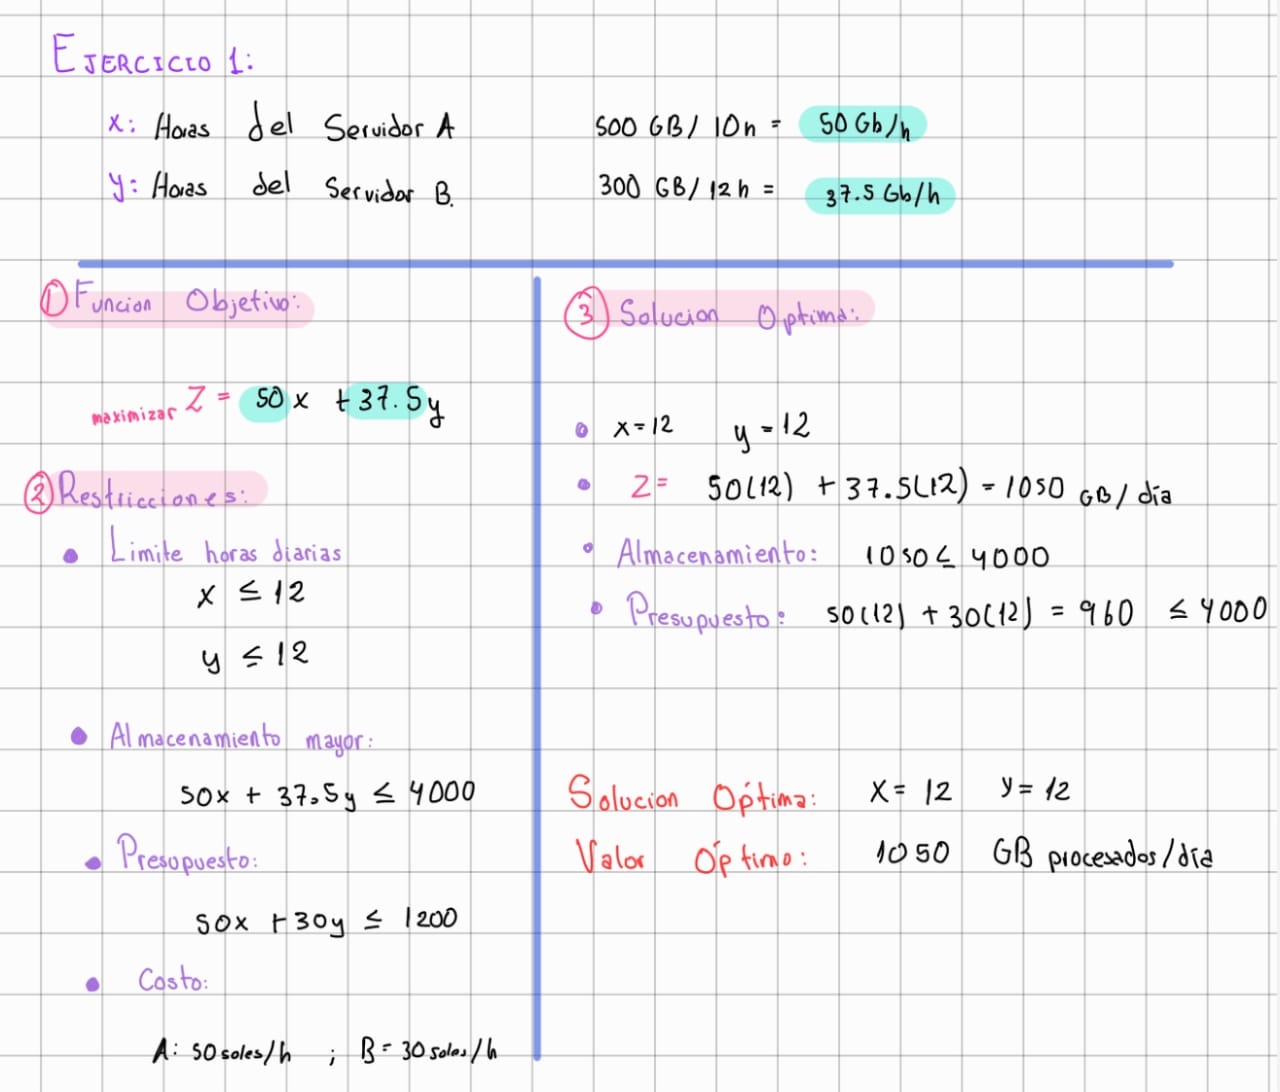 EJERCICIO 1:
x: Horas del Servidor A 500 GB/ 10h = 50 Gb/h
y: Horas del Servidor B. 300 GB/ 12h = 37.5 Gb/h
① Funcion Objetivo:
maximizar Z = 50x + 37.5y
② Restricciones:
• Limite horas diarias
x ≤ 12
y ≤ 12
• Almacenamiento mayor:
50x + 37.5y ≤ 4000
• Presupuesto:
50x + 30y ≤ 1200
• Costo:
A: 50 soles/h ; B = 30 soles/h
③ Solucion Optima:
• x = 12 y = 12
• Z = 50(12) + 37.5(12) = 1050 GB/ día
• Almacenamiento: 1050 ≤ 4000
• Presupuesto: 50(12) + 30(12) = 960 ≤ 4000
Solucion Óptima: X = 12 Y = 12
Valor Óptimo: 1050 GB procesados/día